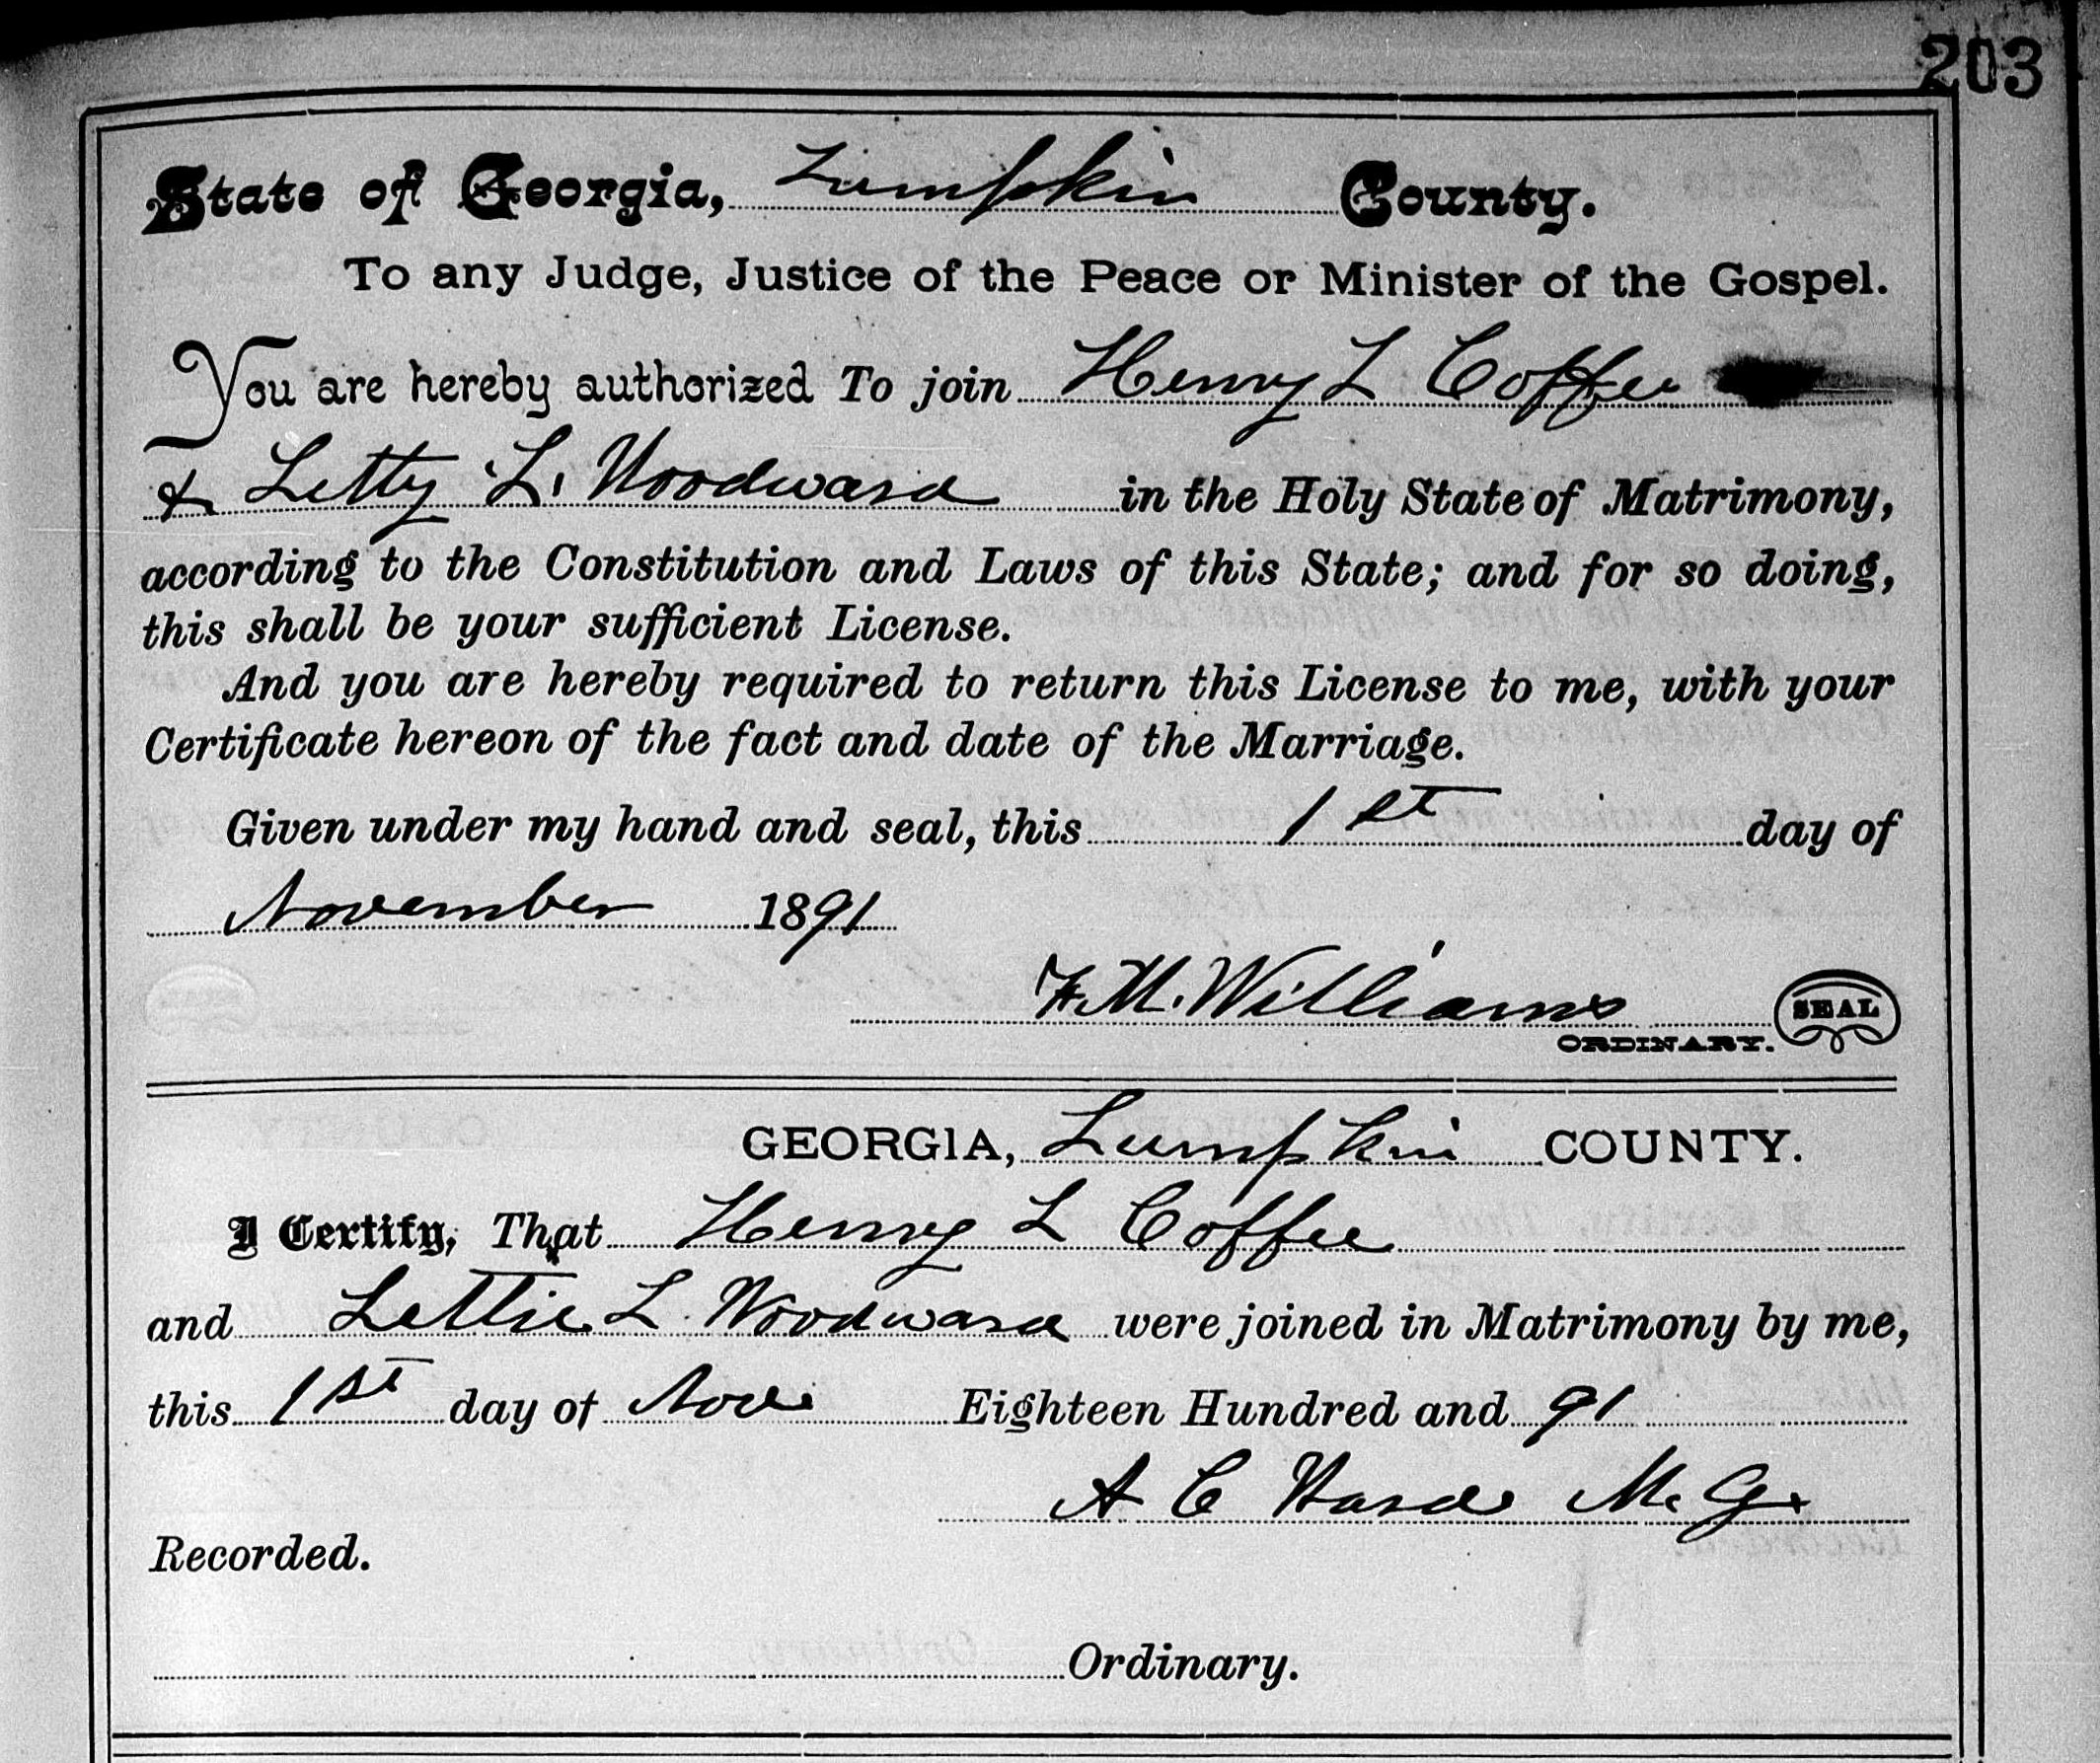 203
State of Georgia, Lumpkin County.
To any Judge, Justice of the Peace or Minister of the Gospel.
You are hereby authorized To join Henry L Coffee
& Letty L. Woodward in the Holy State of Matrimony,
according to the Constitution and Laws of this State; and for so doing,
this shall be your sufficient License.
And you are hereby required to return this License to me, with your
Certificate hereon of the fact and date of the Marriage.
Given under my hand and seal, this 1st day of
November 1891
F. M. Williams SEAL
ORDINARY.
GEORGIA, Lumpkin COUNTY.
I Certify, That Henry L Coffee
and Lettie L. Woodward were joined in Matrimony by me,
this 1st day of Nov. Eighteen Hundred and 91
A C Ward M. G.
Recorded.
Ordinary.